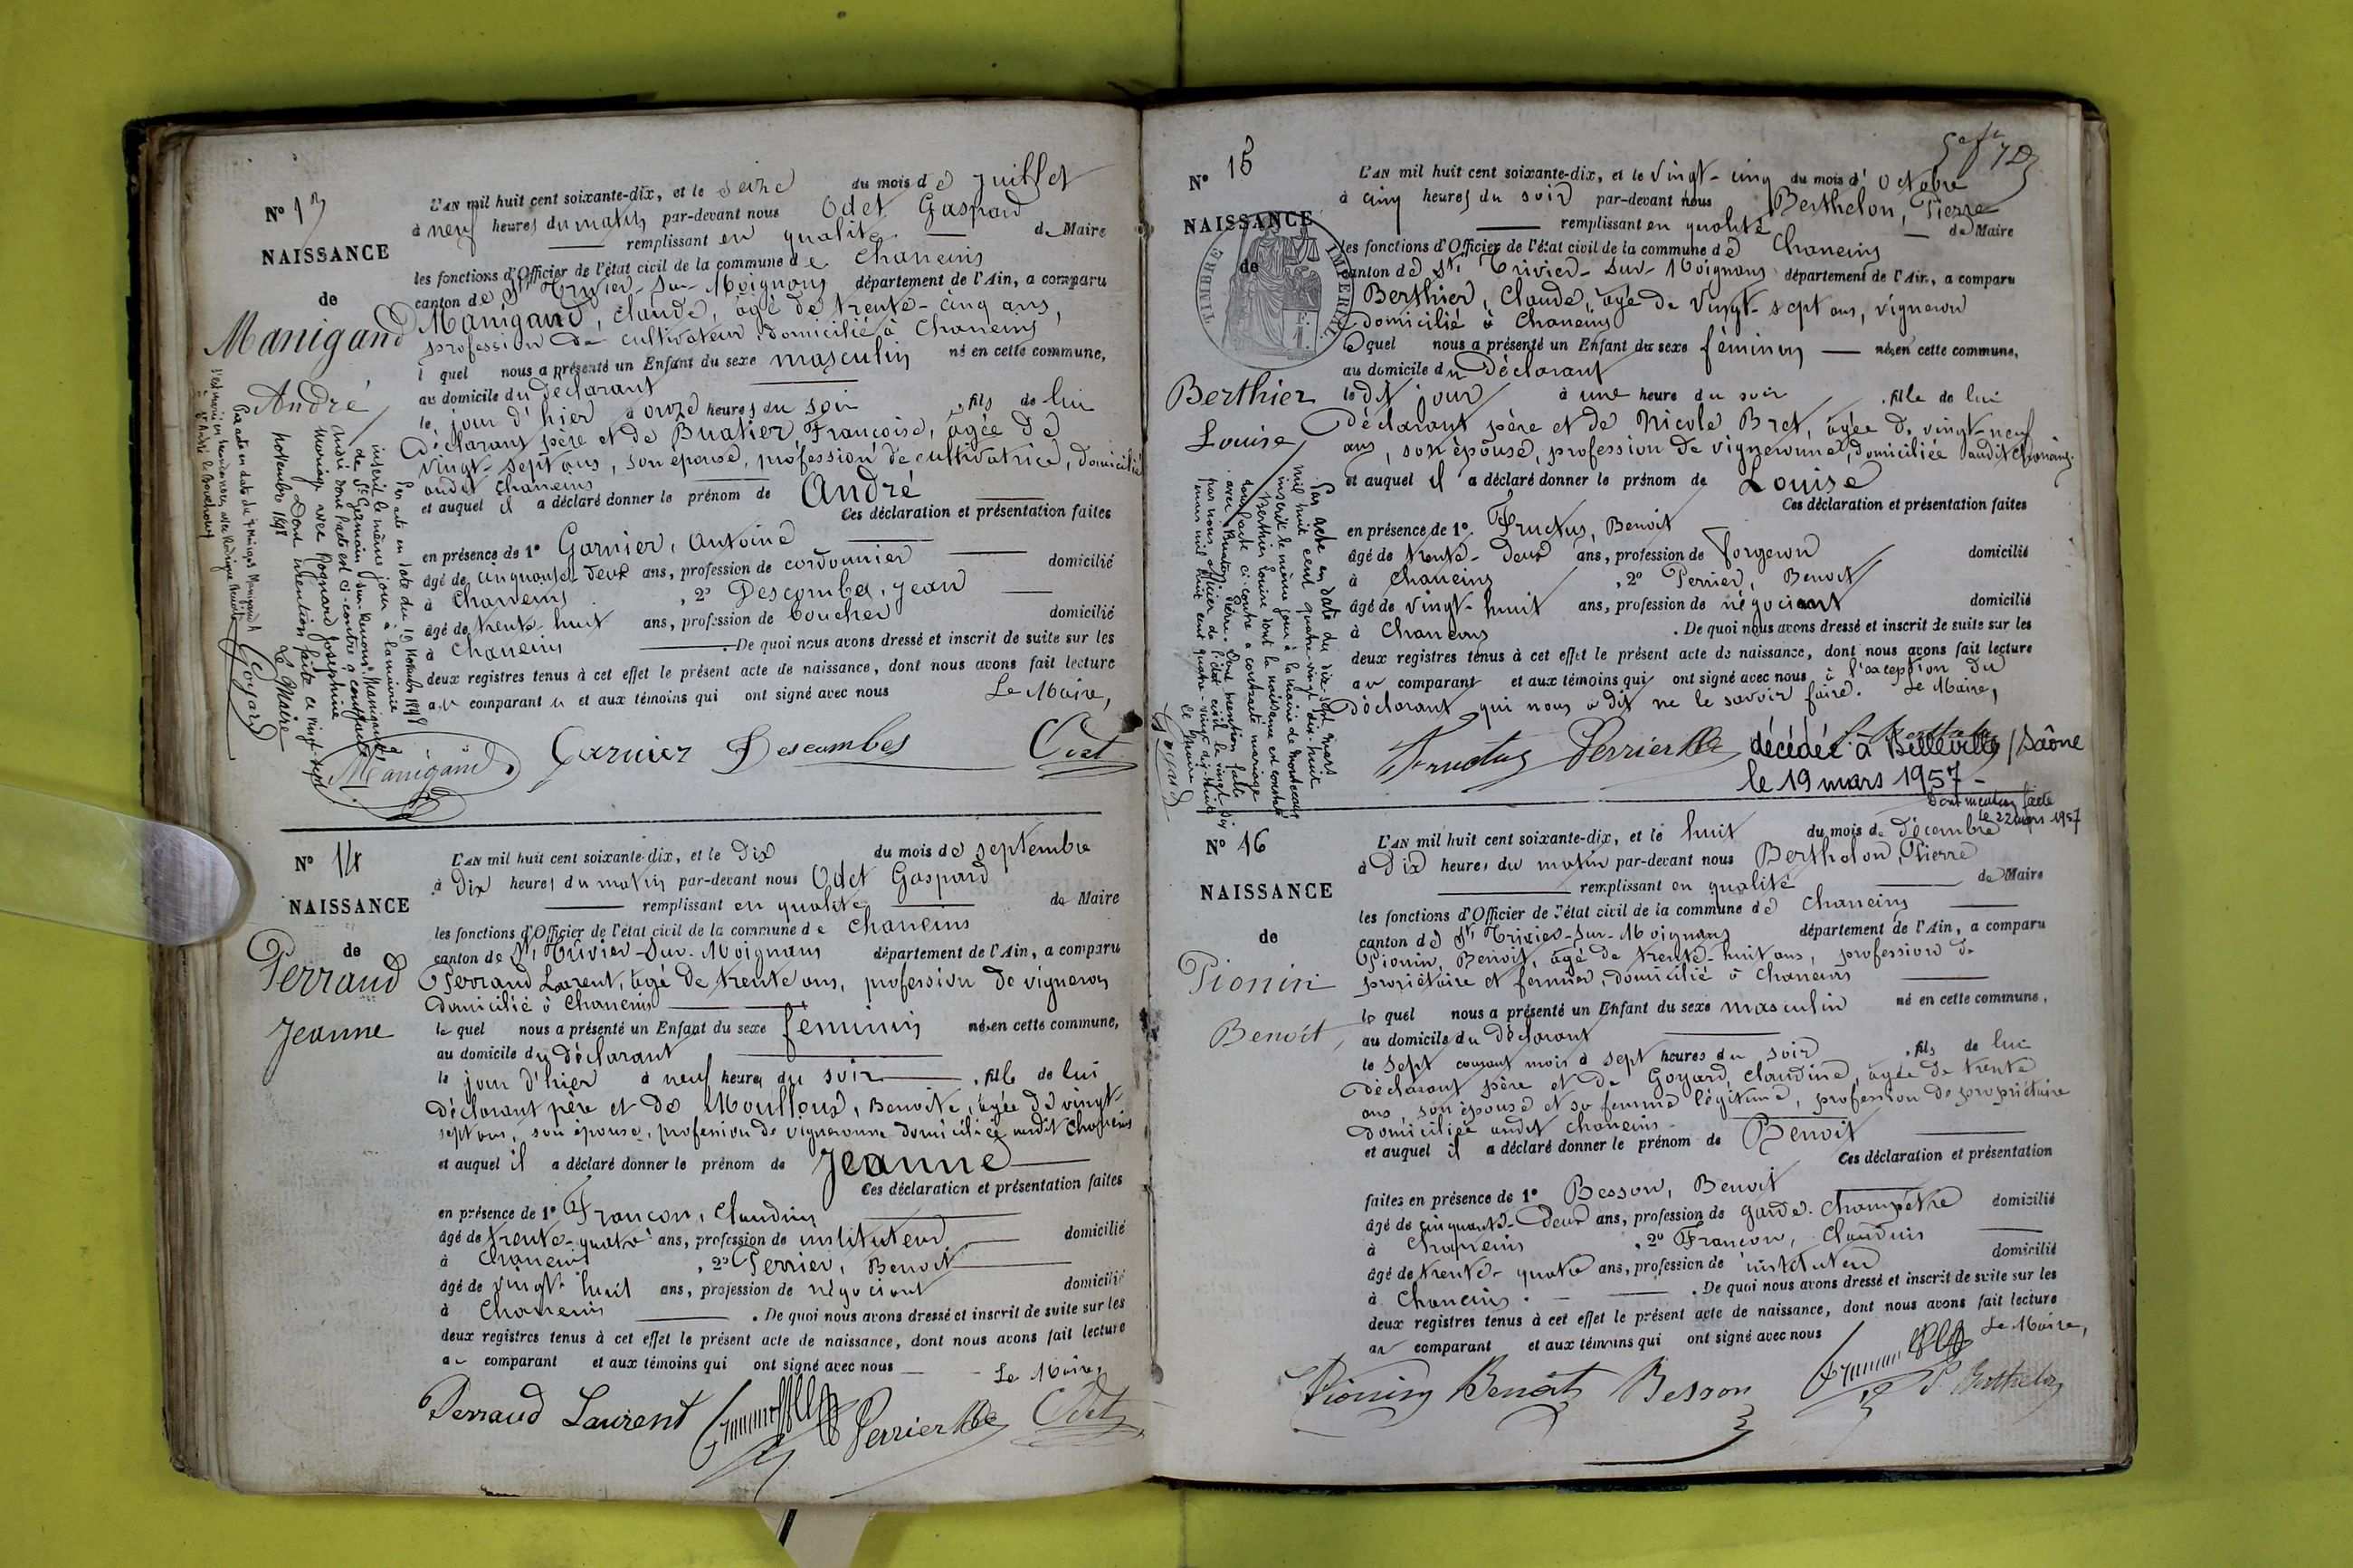 N° 13
NAISSANCE
de
Manigand
André
L'AN mil huit cent soixante-dix, et le seize du mois de Juillet
à neuf heures du matin par-devant nous Odet Gaspard
remplissant en qualité de Maire
les fonctions d'Officier de l'état civil de la commune de Chaneins
canton de St Trivier-sur-Moignans département de l'Ain, a comparu
Manigand, Claude, âgé de trente-cinq ans,
profession de cultivateur, domicilié à Chaneins
l quel nous a présenté un Enfant du sexe masculin né en cette commune,
au domicile du déclarant
le jour d'hier à onze heures du soir, fils de lui
déclarant père et de Buatier, Françoise, âgée de
vingt-sept ans, son épouse, profession de cultivatrice, domiciliée
audit Chaneins
et auquel il a déclaré donner le prénom de André
Ces déclaration et présentation faites
en présence de 1° Garnier, Antoine
âgé de cinquante-deux ans, profession de cordonnier domicilié
à Chaneins, 2° Descombes, Jean
âgé de trente-huit ans, profession de boucher domicilié
à Chaneins. De quoi nous avons dressé et inscrit de suite sur les
deux registres tenus à cet effet le présent acte de naissance, dont nous avons fait lecture
au comparant et aux témoins qui ont signé avec nous Le Maire,
Manigand Garnier Descombes Odet
Par acte en date du 19 Novembre 1898
inscrit le même jour à la mairie
de St Germain sur Renon, Manigand
André dont l'acte est ci-contre a contracté
mariage avec Pognard Joséphine
Dont mention faite ce vingt-sept
novembre 1898
Le Maire
Goyard
N° 14
NAISSANCE
de
Perraud
Jeanne
L'AN mil huit cent soixante-dix, et le dix du mois de septembre
à dix heures du matin par-devant nous Odet Gaspard
remplissant en qualité de Maire
les fonctions d'Officier de l'état civil de la commune de Chaneins
canton de St Trivier-sur-Moignans département de l'Ain, a comparu
Perraud Laurent, âgé de trente ans, profession de vigneron
domicilié à Chaneins
le quel nous a présenté un Enfant du sexe féminin née en cette commune,
au domicile du déclarant
le jour d'hier à neuf heures du soir, fille de lui
déclarant père et de Moulloud, Benoite, âgée de vingt-
sept ans, son épouse, profession de vigneronne domiciliée audit Chaneins
et auquel il a déclaré donner le prénom de Jeanne
Ces déclaration et présentation faites
en présence de 1° Françon, Claudius
âgé de trente-quatre ans, profession de instituteur domicilié
à Chaneins, 2° Perrier, Benoit
âgé de vingt-huit ans, profession de négociant domicilié
à Chaneins. De quoi nous avons dressé et inscrit de suite sur les
deux registres tenus à cet effet le présent acte de naissance, dont nous avons fait lecture
au comparant et aux témoins qui ont signé avec nous Le Maire,
Perraud Laurent Perrier Odet
N° 15
NAISSANCE
de
TIMBRE IMPÉRIAL
Berthier
Louise
L'AN mil huit cent soixante-dix, et le vingt-cinq du mois d'Octobre
à cinq heures du soir par-devant nous Berthelon, Pierre
remplissant en qualité de Maire
les fonctions d'Officier de l'état civil de la commune de Chaneins
canton de St Trivier-sur-Moignans département de l'Ain, a comparu
Berthier, Claude, âgé de vingt-sept ans, vigneron
domicilié à Chaneins
lequel nous a présenté un Enfant du sexe féminin née en cette commune,
au domicile du déclarant
le dit jour à une heure du soir, fille de lui
déclarant père et de Nicole Bret, âgée de vingt-neuf
ans, son épouse, profession de vigneronne, domiciliée audit Chaneins.
et auquel il a déclaré donner le prénom de Louise
Ces déclaration et présentation faites
en présence de 1° Fructus, Benoit
âgé de trente-deux ans, profession de forgeron domicilié
à Chaneins, 2° Perrier, Benoit
âgé de vingt-huit ans, profession de négociant domicilié
à Chaneins. De quoi nous avons dressé et inscrit de suite sur les
deux registres tenus à cet effet le présent acte de naissance, dont nous avons fait lecture
au comparant et aux témoins qui ont signé avec nous à l'exception du
déclarant qui nous a dit ne le savoir faire. Le Maire,
Fructus Perrier
décédée à Belleville s/Saône
le 19 mars 1957 -
Dont mention faite
le 22 mars 1957
Par acte en date du dix-sept mars
mil huit cent quatre-vingt-dix-huit
inscrit le même jour à la mairie de
Berthier Louise dont la naissance est constatée
dans l'acte ci-contre a contracté mariage
avec Buatier Pierre. Dont mention faite
par nous officier de l'état civil le vingt-six
mars mil huit cent quatre-vingt-dix-huit
Le Maire
Goyard
N° 16
NAISSANCE
de
Pionin
Benoit
L'AN mil huit cent soixante-dix, et le huit du mois de décembre
à dix heures du matin par-devant nous Bertholon, Pierre
remplissant en qualité de Maire
les fonctions d'Officier de l'état civil de la commune de Chaneins
canton de St Trivier-sur-Moignans département de l'Ain, a comparu
Pionin, Benoit, âgé de trente-huit ans, profession de
propriétaire et fermier, domicilié à Chaneins
le quel nous a présenté un Enfant du sexe masculin né en cette commune,
au domicile du déclarant
le sept courant mois à sept heures du soir, fils de lui
déclarant père et de Goyard, Claudine, âgée de trente
ans, son épouse et sa femme légitime, profession de propriétaire
domiciliée audit Chaneins.
et auquel il a déclaré donner le prénom de Benoit
Ces déclaration et présentation
faites en présence de 1° Besson, Benoit
âgé de cinquante-deux ans, profession de garde-champêtre domicilié
à Chaneins, 2° Françon, Claudius
âgé de trente-quatre ans, profession de instituteur domicilié
à Chaneins. De quoi nous avons dressé et inscrit de suite sur les
deux registres tenus à cet effet le présent acte de naissance, dont nous avons fait lecture
au comparant et aux témoins qui ont signé avec nous Le Maire,
Pionin Benoit Besson P. Berthelon